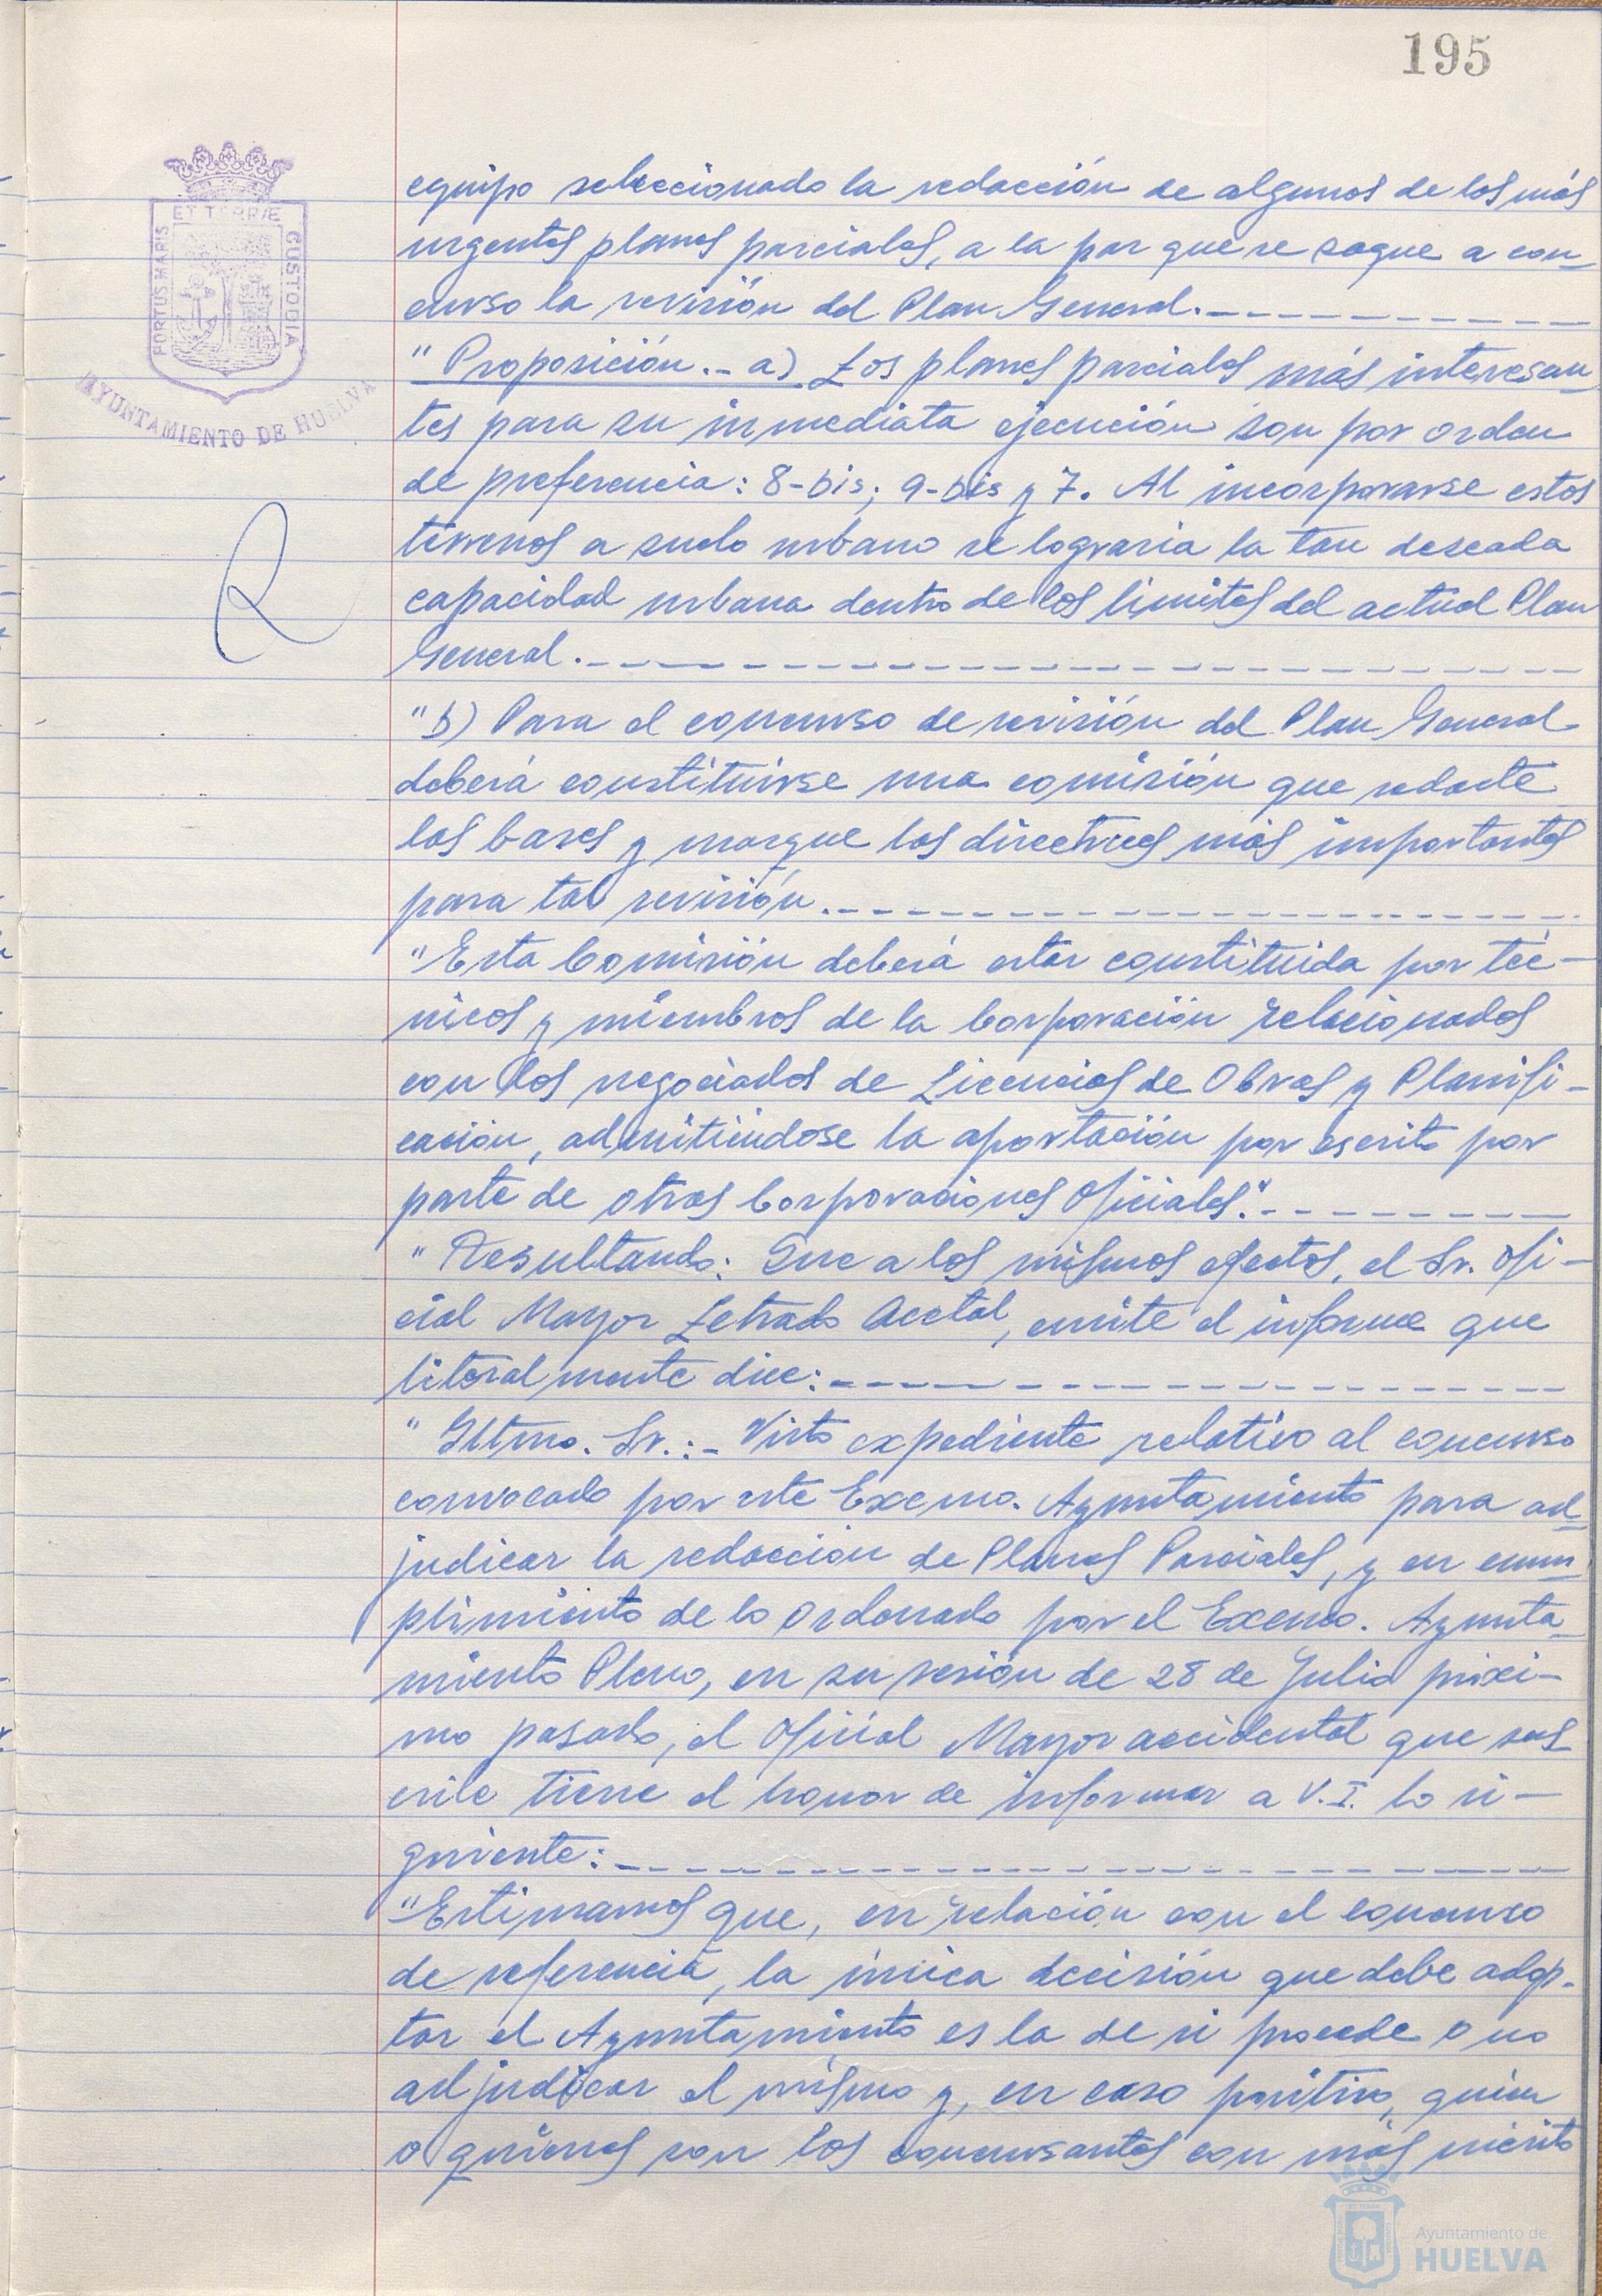 195
PORTUS MARIS
ET TERRÆ
CUSTODIA
AYUNTAMIENTO DE HUELVA
equipo seleccionado la redacción de algunos de los más
urgentes planes parciales, a la par que se saque a con-
curso la revisión del Plan General.-
"Proposición.- a) Los planes parciales más interesan-
tes para su inmediata ejecución son por orden
de preferencia: 8-bis; 9-bis y 7. Al incorporarse estos
terrenos a suelo urbano se lograria la tan deseada
capacidad urbana dentro de los limites del actual Plan
General.-
"b) Para el concurso de revisión del Plan General
deberá constituirse una comisión que redacte
las bases y marque las directrices más importantes
para tal revisión.-
"Esta Comisión deberá estar constituida por téc-
nicos y miembros de la Corporación relacionados
con los negociados de Licencias de Obras y Planifi-
cación, admitiéndose la aportación por escrito por
parte de otras Corporaciones Oficiales".-
"Resultando: Que a los mismos efectos, el Sr. Ofi-
cial Mayor Letrado Acctal, emite el informe que
literalmente dice:-
"Iltmo. Sr.:- Visto expediente relativo al concurso
convocado por este Excmo. Ayuntamiento para ad-
judicar la redacción de Planes Parciales, y en cum-
plimiento de lo ordenado por el Excmo. Ayunta-
miento Pleno, en su sesión de 28 de Julio próxi-
mo pasado, el Oficial Mayor accidental que sus-
cribe tiene el honor de informar a V.I. lo si-
guiente:-
"Estimamos que, en relación con el concurso
de referencia, la única decisión que debe adop-
tar el Ayuntamiento es la de si procede o no
adjudicar el mismo y, en caso positivo, quien
o quienes son los concursantes con más mérito
Ayuntamiento de
HUELVA